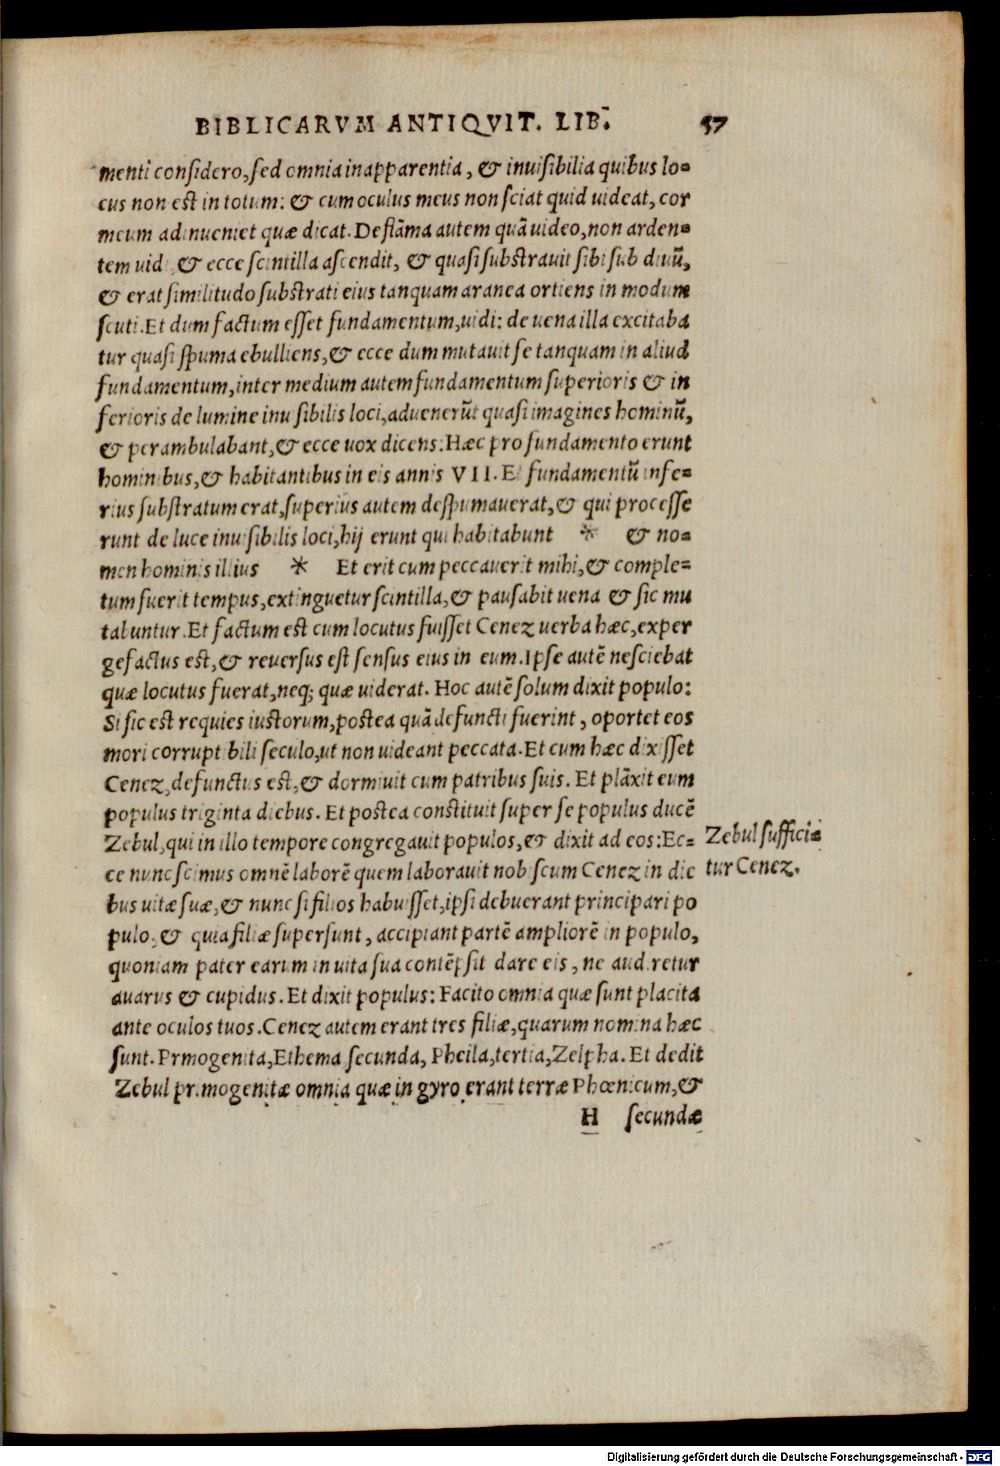 BIBLICARVM ANTIQVIT. LIB.̄ 57
menti considero, sed omnia inapparentia, & inuisibilia quibus lo=
cus non est in totum: & cum oculus meus non sciat quid uideat, cor
meum adinueniet quæ dicat. De flāma autem quā uideo, non arden=
tem uid , & ecce scintilla ascendit, & quasi substrauit sibi sub diuū,
& erat similitudo substrati eius tanquam aranea ortiens in modum
scuti. Et dum factum esset fundamentum, uidi: de uena illa excitaba
tur quasi spuma ebulliens, & ecce dum mutauit se tanquam in aliud
fundamentum, inter medium autem fundamentum superioris & in
ferioris de lumine inuisibilis loci, aduenerūt quasi imagines hominū,
& perambulabant, & ecce uox dicens: Hæc pro fundamento erunt
hominibus, & habitantibus in eis annis VII. Et fundamentū infe=
rius substratum erat, superius autem despumauerat, & qui processe
runt de luce inuisibilis loci, hij erunt qui habitabunt * & no=
men hominis illius * Et erit cum peccauerit mihi, & comple=
tum fuerit tempus, extinguetur scintilla, & pausabit uena & sic mu
tabuntur. Et factum est cum locutus fuisset Cenez uerba hæc, exper
gefactus est, & reuersus est sensus eius in eum. Ipse autē nesciebat
quæ locutus fuerat, neq; quæ uiderat. Hoc autē solum dixit populo:
Si sic est requies iustorum, postea quā defuncti fuerint, oportet eos
mori corruptibili seculo, ut non uideant peccata. Et cum hæc dixisset
Cenez, defunctus est, & dormiuit cum patribus suis. Et plāxit eum
populus triginta diebus. Et postea constituit super se populus ducē
Zebul, qui in illo tempore congregauit populos, & dixit ad eos: Ec=
ce nunc scimus omnē laborē quem laborauit nobiscum Cenez in die
bus uitæ suæ, & nunc si filios habuisset, ipsi debuerant principari po
pulo, & quia filiæ supersunt, accipiant partē ampliorē in populo,
quoniam pater earum in uita sua contēpsit dare eis, ne audiretur
auarus & cupidus. Et dixit populus: Facito omnia quæ sunt placita
ante oculos tuos. Cenez autem erant tres filiæ, quarum nomina hæc
sunt. Prmogenita, Ethema secunda, Pheila, tertia, Zelpha. Et dedit
Zebul primogenitæ omnia quæ in gyro erant terræ Phœnicum, &
H secundæ
Zebul suffici=
tur Cenez.
Digitalisierung gefördert durch die Deutsche Forschungsgemeinschaft - DFG